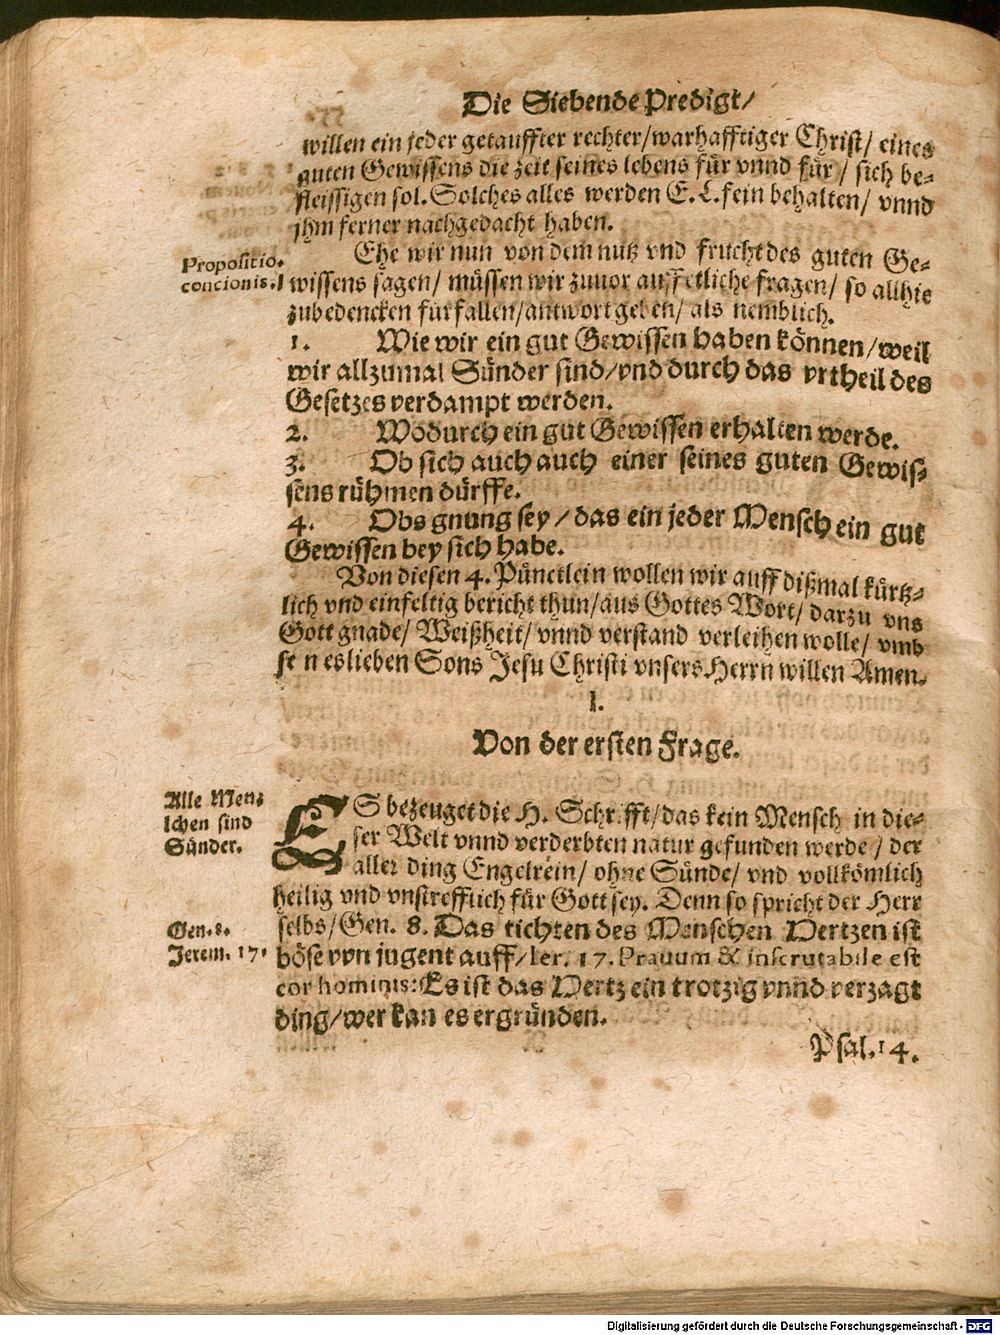 Die Siebende Predigt/
willen ein jeder getauffter rechter/warhafftiger Christ/ eines
guten Gewissens die zeit seines lebens für vnnd für/ sich be-
fleissigen sol. Solches alles werden E. L. fein behalten/ vnnd
jhm ferner nachgedacht haben.
Propositio
concionis.
Ehe wir nun von dem nutz vnd frucht des guten Ge-
wissens sagen/ müssen wir zuuor auff etliche fragen/ so allhie
zubedencken fürfallen/antwort geben/ als nemblich.
1. Wie wir ein gut Gewissen haben können/weil
wir allzumal Sünder sind/vnd durch das vrtheil des
Gesetzes verdampt werden.
2. Wodurch ein gut Gewissen erhalten werde.
3. Ob sich auch auch einer seines guten Gewis-
sens rühmen dürffe.
4. Obs gnung sey/das ein jeder Mensch ein gut
Gewissen bey sich habe.
Von diesen 4. Pünctlein wollen wir auff dißmal kürtz-
lich vnd einfeltig bericht thun/aus Gottes Wort/ darzu vns
Gott gnade/ Weißheit/ vnnd verstand verleihen wolle/ vmb
se n es lieben Sons Jesu Christi vnsers Herrn willen Amen.
I.
Von der ersten Frage.
Alle Men-
schen sind
Sünder.
ES bezeuget die H. Schrifft/das kein Mensch in die-
ser Welt vnnd verderbten natur gefunden werde/ der
aller ding Engelrein/ ohne Sünde/ vnd vollkömlich
heilig vnd vnstrefflich für Gott sey. Denn so spricht der Herr
Gen. 8.
Jerem. 17.
selbs/Gen. 8. Das tichten des Menschen Hertzen ist
böse von jugent auff/Ier. 17. Prauum & inscrutabile est
cor hominis: Es ist das Hertz ein trotzig vnnd verzagt
ding/wer kan es ergründen.
Psal. 14.
Digitalisierung gefördert durch die Deutsche Forschungsgemeinschaft - DFG